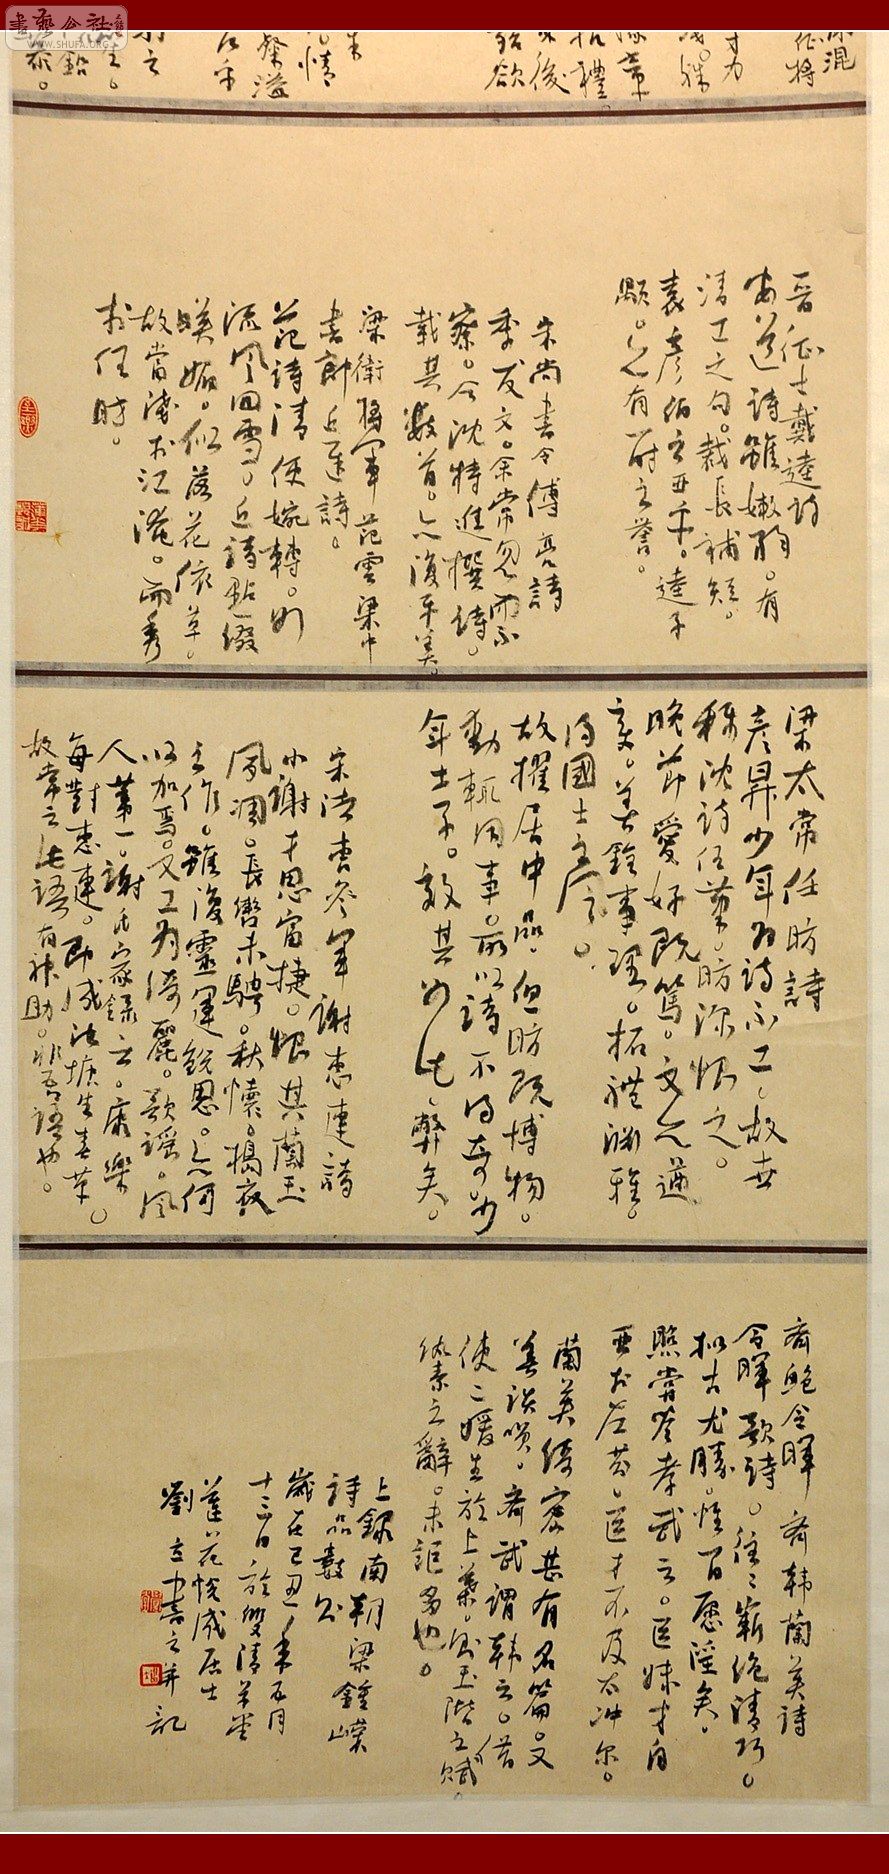 書藝公社
WWW.SHUFA.ORG
混
征將
才力
章
禮
後
欲
情
粲溢
鉛
晉征士戴逵詩
安道詩雖嫩弱。有
清工之句。裁長補短。
袁彥伯之亞乎。逵子
顒。亦有一時之譽。
宋尚書令傅亮詩
季友文。余常忽而不
察。今沈特進撰詩。
載其數首。亦復平美。
梁衛將軍范雲梁中
書郎丘遲詩。
范詩清便婉轉。如
流風回雪。丘詩點綴
映媚。似落花依草。
故當淺於江淹。而秀
於任昉。
梁太常任昉詩
彥昇少年為詩不工。故世
稱沈詩任筆。昉深恨之。
晚節愛好既篤。文亦遒
變。善銓事理。拓體淵雅。
得國士之風。
故擢居中品。但昉既博物。
動輒用事。所以詩不得奇。少
年士子。效其如此。弊矣。
宋法曹參軍謝惠連詩
小謝才思富捷。恨其蘭玉
夙凋。長轡未騁。秋懷。搗衣
之作。雖復靈運銳思。亦何
以加焉。又工為綺麗。歌謠。風
人第一。謝氏家錄云。康樂
每對惠連。即成池塘生春草。
故常云此語有神助。非吾語也。
齊鮑令暉 齊韓蘭英詩
令暉歌詩。往往嶄絕清巧。
擬古尤勝。惟百愿淫矣。
照嘗答孝武云。臣妹才自
亞於左芬。臣才不及太沖爾。
蘭英綺密甚有名篇。又
善談笑。齊武謂韓云。借
使二媛生於上葉。則玉階之賦
紈素之辭。未詎多也。
上錄南朝梁鍾嶸
詩品數則
歲在己丑年五月
十三日於雙清草堂
蓮花悅成居士
劉立書之并記